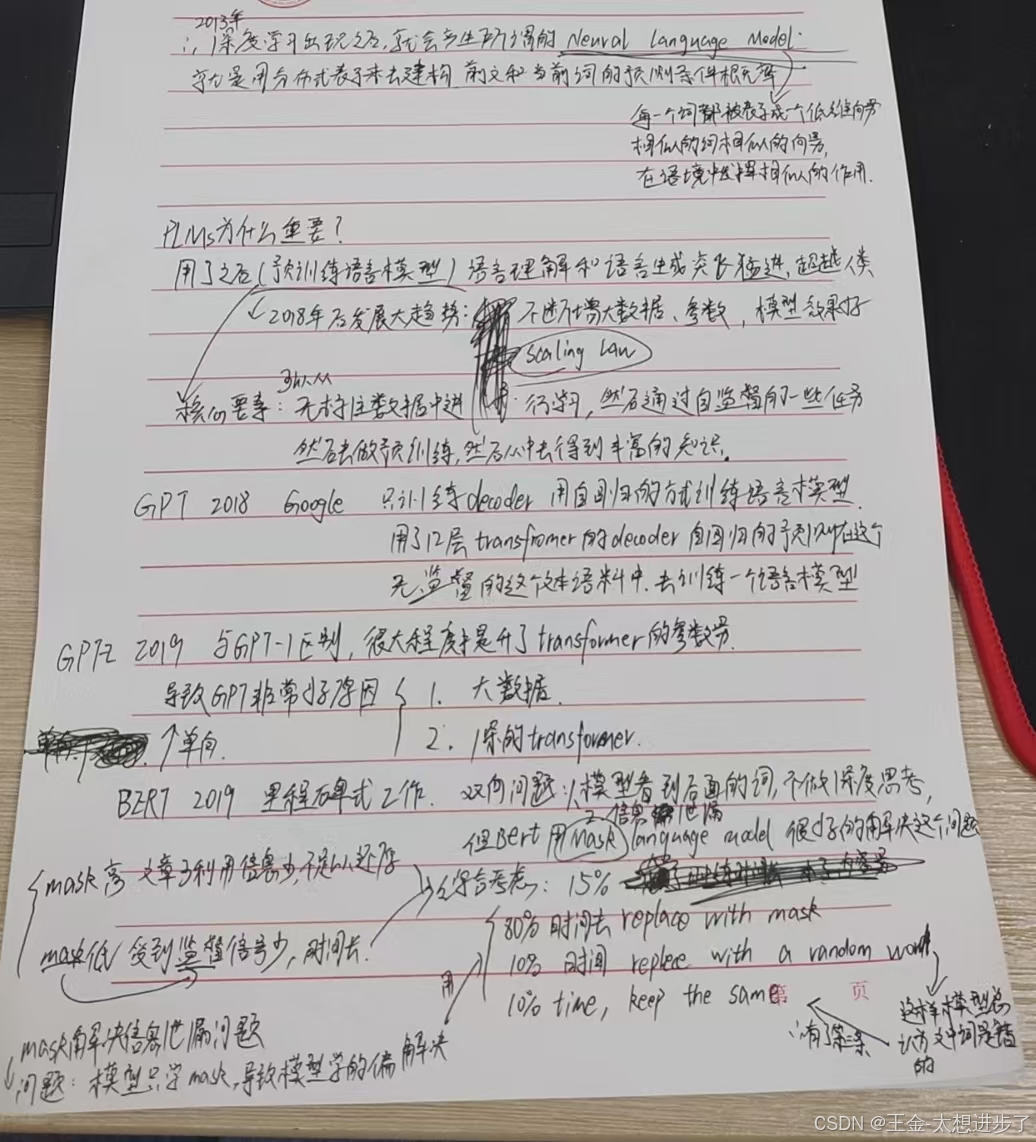 2013年
∴ 深度学习出现之后,就会产生所谓的 Neural Language Model.
就是用分布式表示来去建构 前文和当前词的预测条件概率
每一个词都被表示成一个低维向量
相似的词相似的向量,
在语境中发挥相似的作用.
PLMs为什么重要?
用了之后(预训练语言模型)语言理解和语言生成突飞猛进,超越人类
2018年后发展大趋势: 不断增大数据、参数,模型效果好
Scaling Law
可以从
核心要素: 无标注数据中进行学习,然后通过自监督的一些任务
然后去做预训练,然后从中去得到丰富的知识.
GPT 2018 Google 只训练decoder 用自回归的方式训练语言模型
用了12层transfromer的decoder 自回归的预测在这个
无监督的这个文本语料中.去训练一个语言模型
GPT-2 2019 与GPT-1区别,很大程度提升了transformer的参数量.
导致GPT非常好原因 1. 大数据.
↑单向. 2. 深的transformer.
BERT 2019 里程碑式工作. 双向问题:1.模型看到后面的词,不做深度思考,
2.信息泄漏
但Bert 用Mask language model 很好的解决这个问题
mask高 文章可利用信息少,不足以还原
综合考虑: 15%
80%时间去 replace with mask
mask低 受到监督信号少,时间长.
10% 时间 replece with a random word
用
10% time, keep the same
第 页
这样模型总认为文中词是错的
∴有了第三条
mask解决信息泄漏问题
问题: 模型只学mask,导致模型学的偏 解决
CSDN @王金-太想进步了